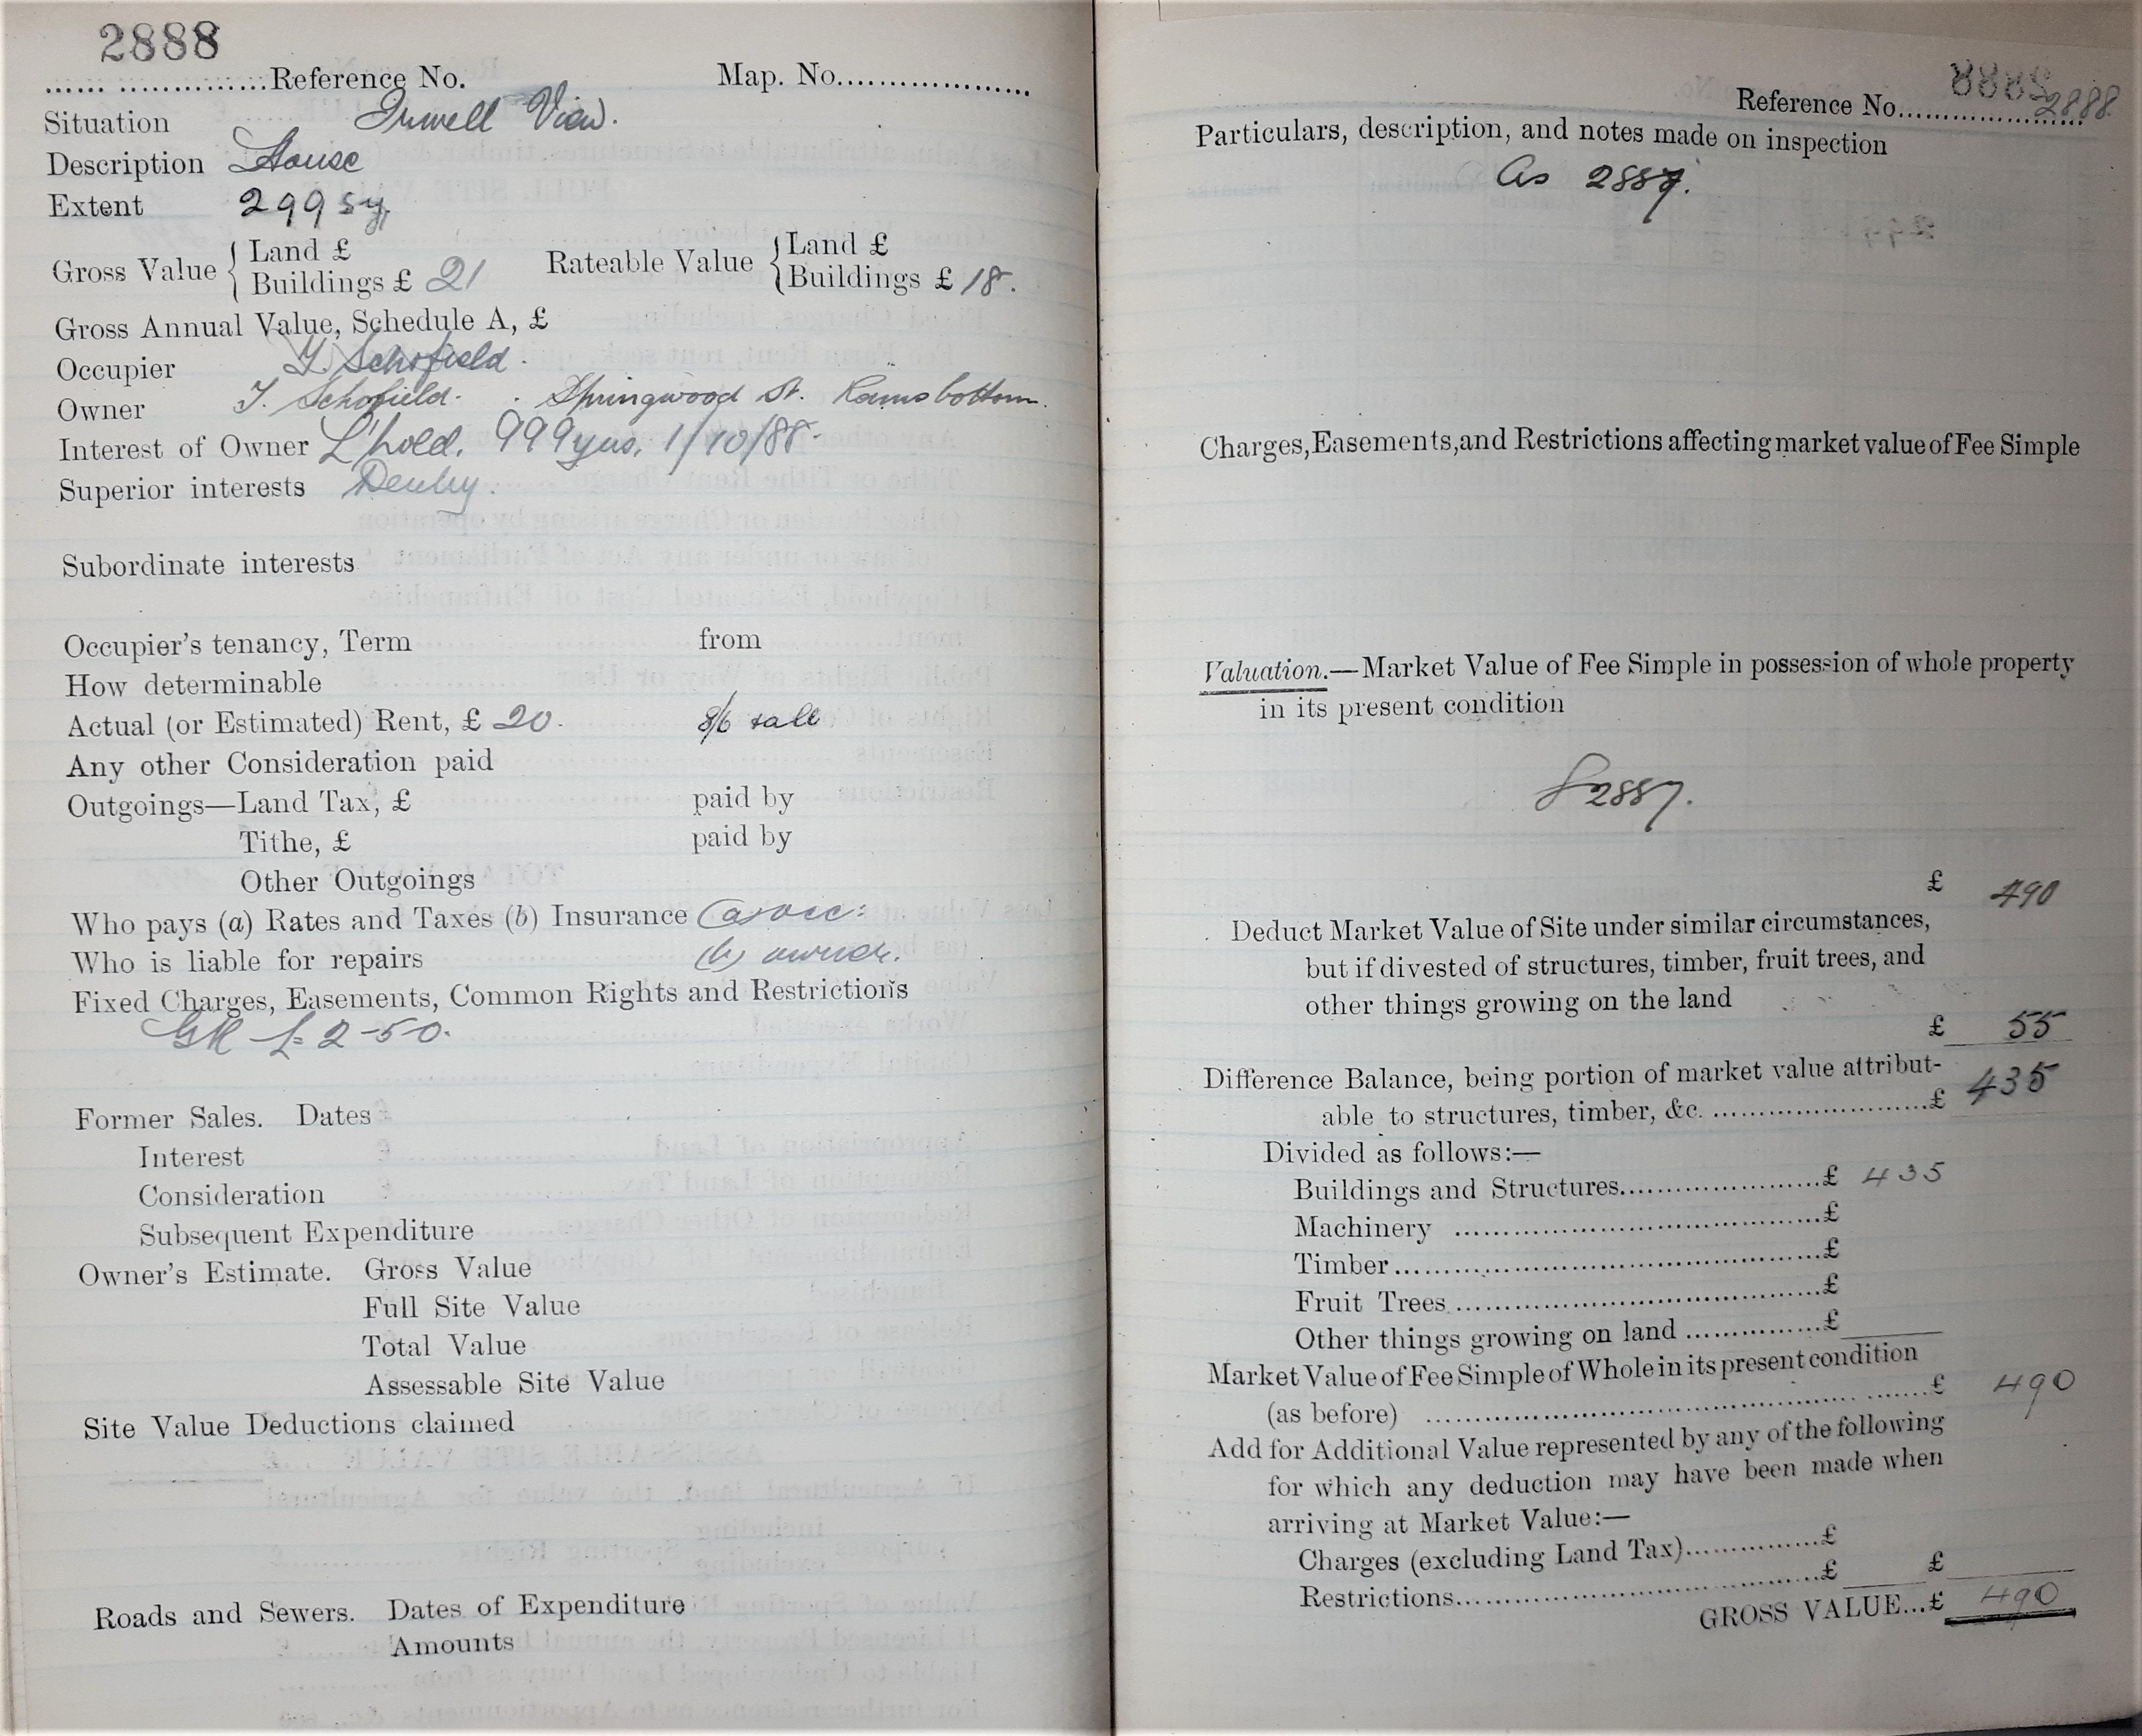 2888
Reference No. Map. No.
Situation Irwell View.
Description House
Extent 299 sy.
Gross Value { Land £
Buildings £ 21
Rateable Value { Land £
Buildings £ 18.
Gross Annual Value, Schedule A, £
Occupier Schofield.
Owner Schofield. Springwood St. Ramsbottom.
Interest of Owner L'hold. 999 yrs. 1/10/88.
Superior interests
Subordinate interests
Occupier's tenancy, Term from
How determinable
Actual (or Estimated) Rent, £ 20. 8/6
Any other Consideration paid
Outgoings—Land Tax, £ paid by
Tithe, £ paid by
Other Outgoings
Who pays (a) Rates and Taxes (b) Insurance (a) occ:
Who is liable for repairs (b) owner.
Fixed Charges, Easements, Common Rights and Restrictions
GR £ 2-5-0.
Former Sales. Dates
Interest
Consideration
Subsequent Expenditure
Owner's Estimate. Gross Value
Full Site Value
Total Value
Assessable Site Value
Site Value Deductions claimed
Roads and Sewers. Dates of Expenditure
Amounts
Reference No. 2888.
Particulars, description, and notes made on inspection
As 2887.
Charges, Easements, and Restrictions affecting market value of Fee Simple
Valuation.—Market Value of Fee Simple in possession of whole property
in its present condition
2887.
£ 490
Deduct Market Value of Site under similar circumstances,
but if divested of structures, timber, fruit trees, and
other things growing on the land
£ 55
Difference Balance, being portion of market value attribut-
able to structures, timber, &c. £ 435
Divided as follows:—
Buildings and Structures £ 435
Machinery £
Timber £
Fruit Trees £
Other things growing on land £
Market Value of Fee Simple of Whole in its present condition
(as before) £ 490
Add for Additional Value represented by any of the following
for which any deduction may have been made when
arriving at Market Value:—
Charges (excluding Land Tax) £
Restrictions £ £
GROSS VALUE...£ 490